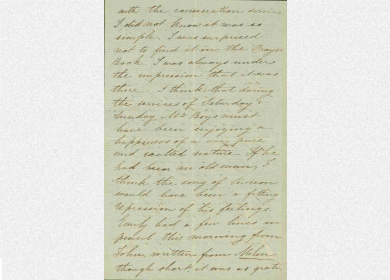 with the consecration service
I did not know it was so
simple. I was surprised
not to find it in the Prayer
Book. I was always under
the impression that it was
there. I think that during
the services of Saturday &
Sunday, Mr Boys must
have been enjoying a
happiness of a very pure
and exalted nature. If he
had been an old man, I
think the song of Simeon
would have been a fitting
expression of his feelings.
Emily had a few lines in
pencil this morning from
John, written from
though short, it was as